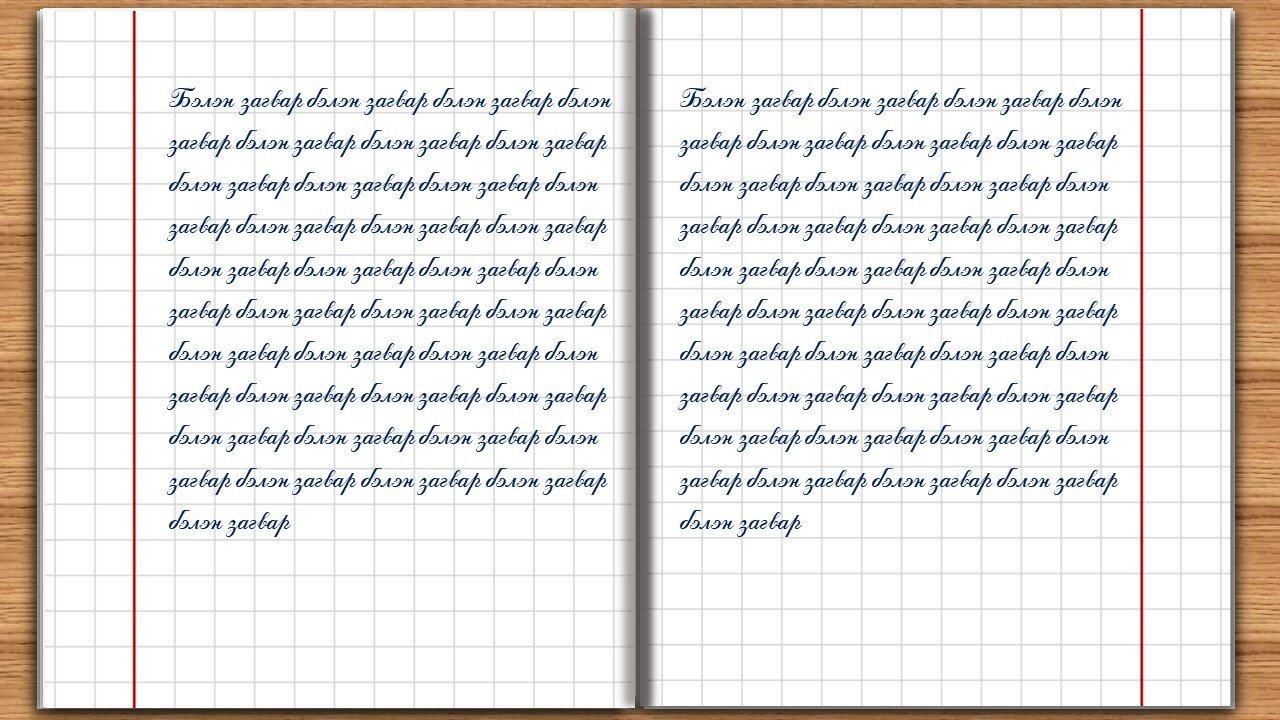 Бэлэн загвар бэлэн загвар бэлэн загвар бэлэн
загвар бэлэн загвар бэлэн загвар бэлэн загвар
бэлэн загвар бэлэн загвар бэлэн загвар бэлэн
загвар бэлэн загвар бэлэн загвар бэлэн загвар
бэлэн загвар бэлэн загвар бэлэн загвар бэлэн
загвар бэлэн загвар бэлэн загвар бэлэн загвар
бэлэн загвар бэлэн загвар бэлэн загвар бэлэн
загвар бэлэн загвар бэлэн загвар бэлэн загвар
бэлэн загвар бэлэн загвар бэлэн загвар бэлэн
загвар бэлэн загвар бэлэн загвар бэлэн загвар
бэлэн загвар
Бэлэн загвар бэлэн загвар бэлэн загвар бэлэн
загвар бэлэн загвар бэлэн загвар бэлэн загвар
бэлэн загвар бэлэн загвар бэлэн загвар бэлэн
загвар бэлэн загвар бэлэн загвар бэлэн загвар
бэлэн загвар бэлэн загвар бэлэн загвар бэлэн
загвар бэлэн загвар бэлэн загвар бэлэн загвар
бэлэн загвар бэлэн загвар бэлэн загвар бэлэн
загвар бэлэн загвар бэлэн загвар бэлэн загвар
бэлэн загвар бэлэн загвар бэлэн загвар бэлэн
загвар бэлэн загвар бэлэн загвар бэлэн загвар
бэлэн загвар